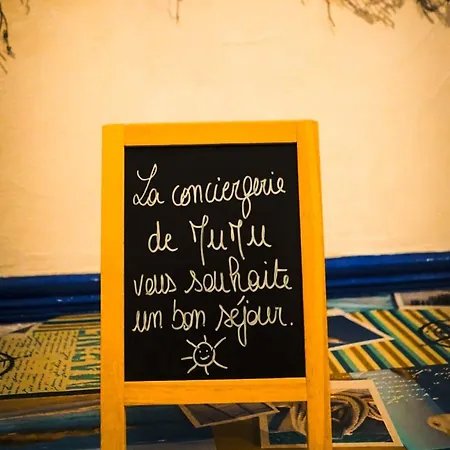 La conciergerie
de MuMu
vous souhaite
un bon séjour.